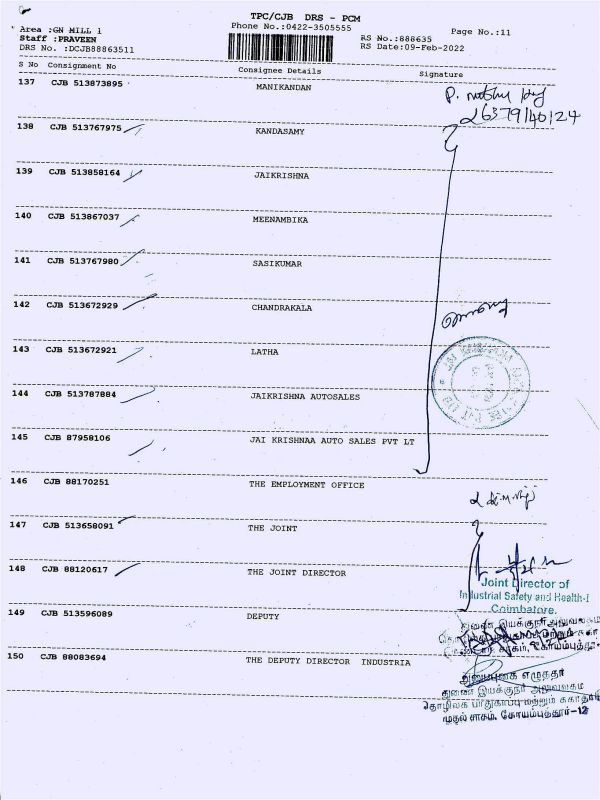 TPC/CJB DRS - PCM
Area :GN MILL 1
Phone No.:0422-3505555
Page No.:11
Staff :PRAVEEN
RS No.:888635
DRS No. :DCJB88863511
RS Date:09-Feb-2022
S No Consignment No Consignee Details Signature
137 CJB 513873895 MANIKANDAN
P.
26379140124
138 CJB 513767975 KANDASAMY
139 CJB 513858164 JAIKRISHNA
140 CJB 513867037 MEENAMBIKA
141 CJB 513767980 SASIKUMAR
142 CJB 513672929 CHANDRAKALA
143 CJB 513672921 LATHA
144 CJB 513787884 JAIKRISHNA AUTOSALES
145 CJB 87958106 JAI KRISHNAA AUTO SALES PVT LT
146 CJB 88170251 THE EMPLOYMENT OFFICE
147 CJB 513658091 THE JOINT
148 CJB 88120617 THE JOINT DIRECTOR
Joint Director of
Industrial Safety and Health-I
Coimbatore.
149 CJB 513596089 DEPUTY
துணை இயக்குநர் அலுவலகம்
150 CJB 88083694 THE DEPUTY DIRECTOR INDUSTRIA
அனுப்புகை எழுத்தர்
துணை இயக்குநர் அலுவலகம்
தொழிலக பாதுகாப்பு மற்றும்
முதல் சரகம், கோயம்புத்தூர்-12